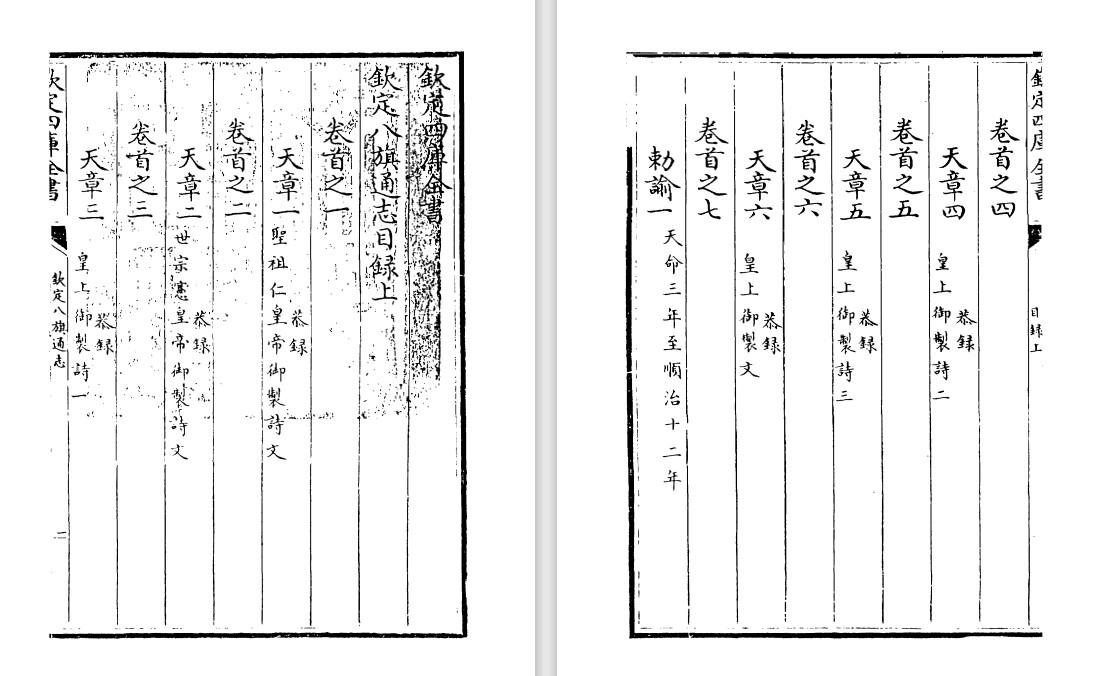 欽定四庫全書
欽定八旗通志目録上
卷首之一
天章一
恭録
聖祖仁皇帝御製詩文
卷首之二
天章二
恭録
世宗憲皇帝御製詩文
卷首之三
天章三
恭録
皇上御製詩一
欽定四庫全書
欽定八旗通志
二
欽定四庫全書
目録上
卷首之四
天章四
恭録
皇上御製詩二
卷首之五
天章五
恭録
皇上御製詩三
卷首之六
天章六
恭録
皇上御製文
卷首之七
勅諭一
天命三年至順治十二年